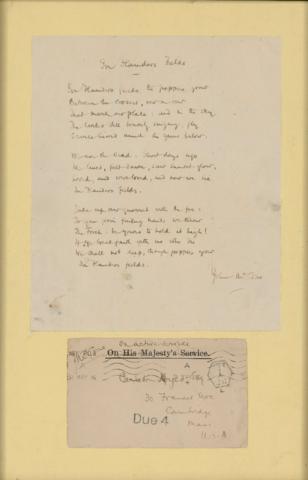 In Flanders Fields
In Flanders fields the poppies grow
Between the crosses, row on row
That mark our place: and in the sky
The larks still bravely singing, fly
Scarce heard amid the guns below.
We are the Dead. Short days ago
We lived, felt dawn, saw sunset glow,
Loved, and were loved, and now we lie
In Flanders fields.
Take up our quarrel with the foe:
To you from failing hands we throw
The torch: be yours to hold it high!
If ye break faith with us who die
We shall not sleep, though poppies grow
In Flanders fields.
John McCrae
On active service
On His Majesty's Service.
Carleton
30 Francis Ave
Cambridge
Mass
U.S.A
Due 4